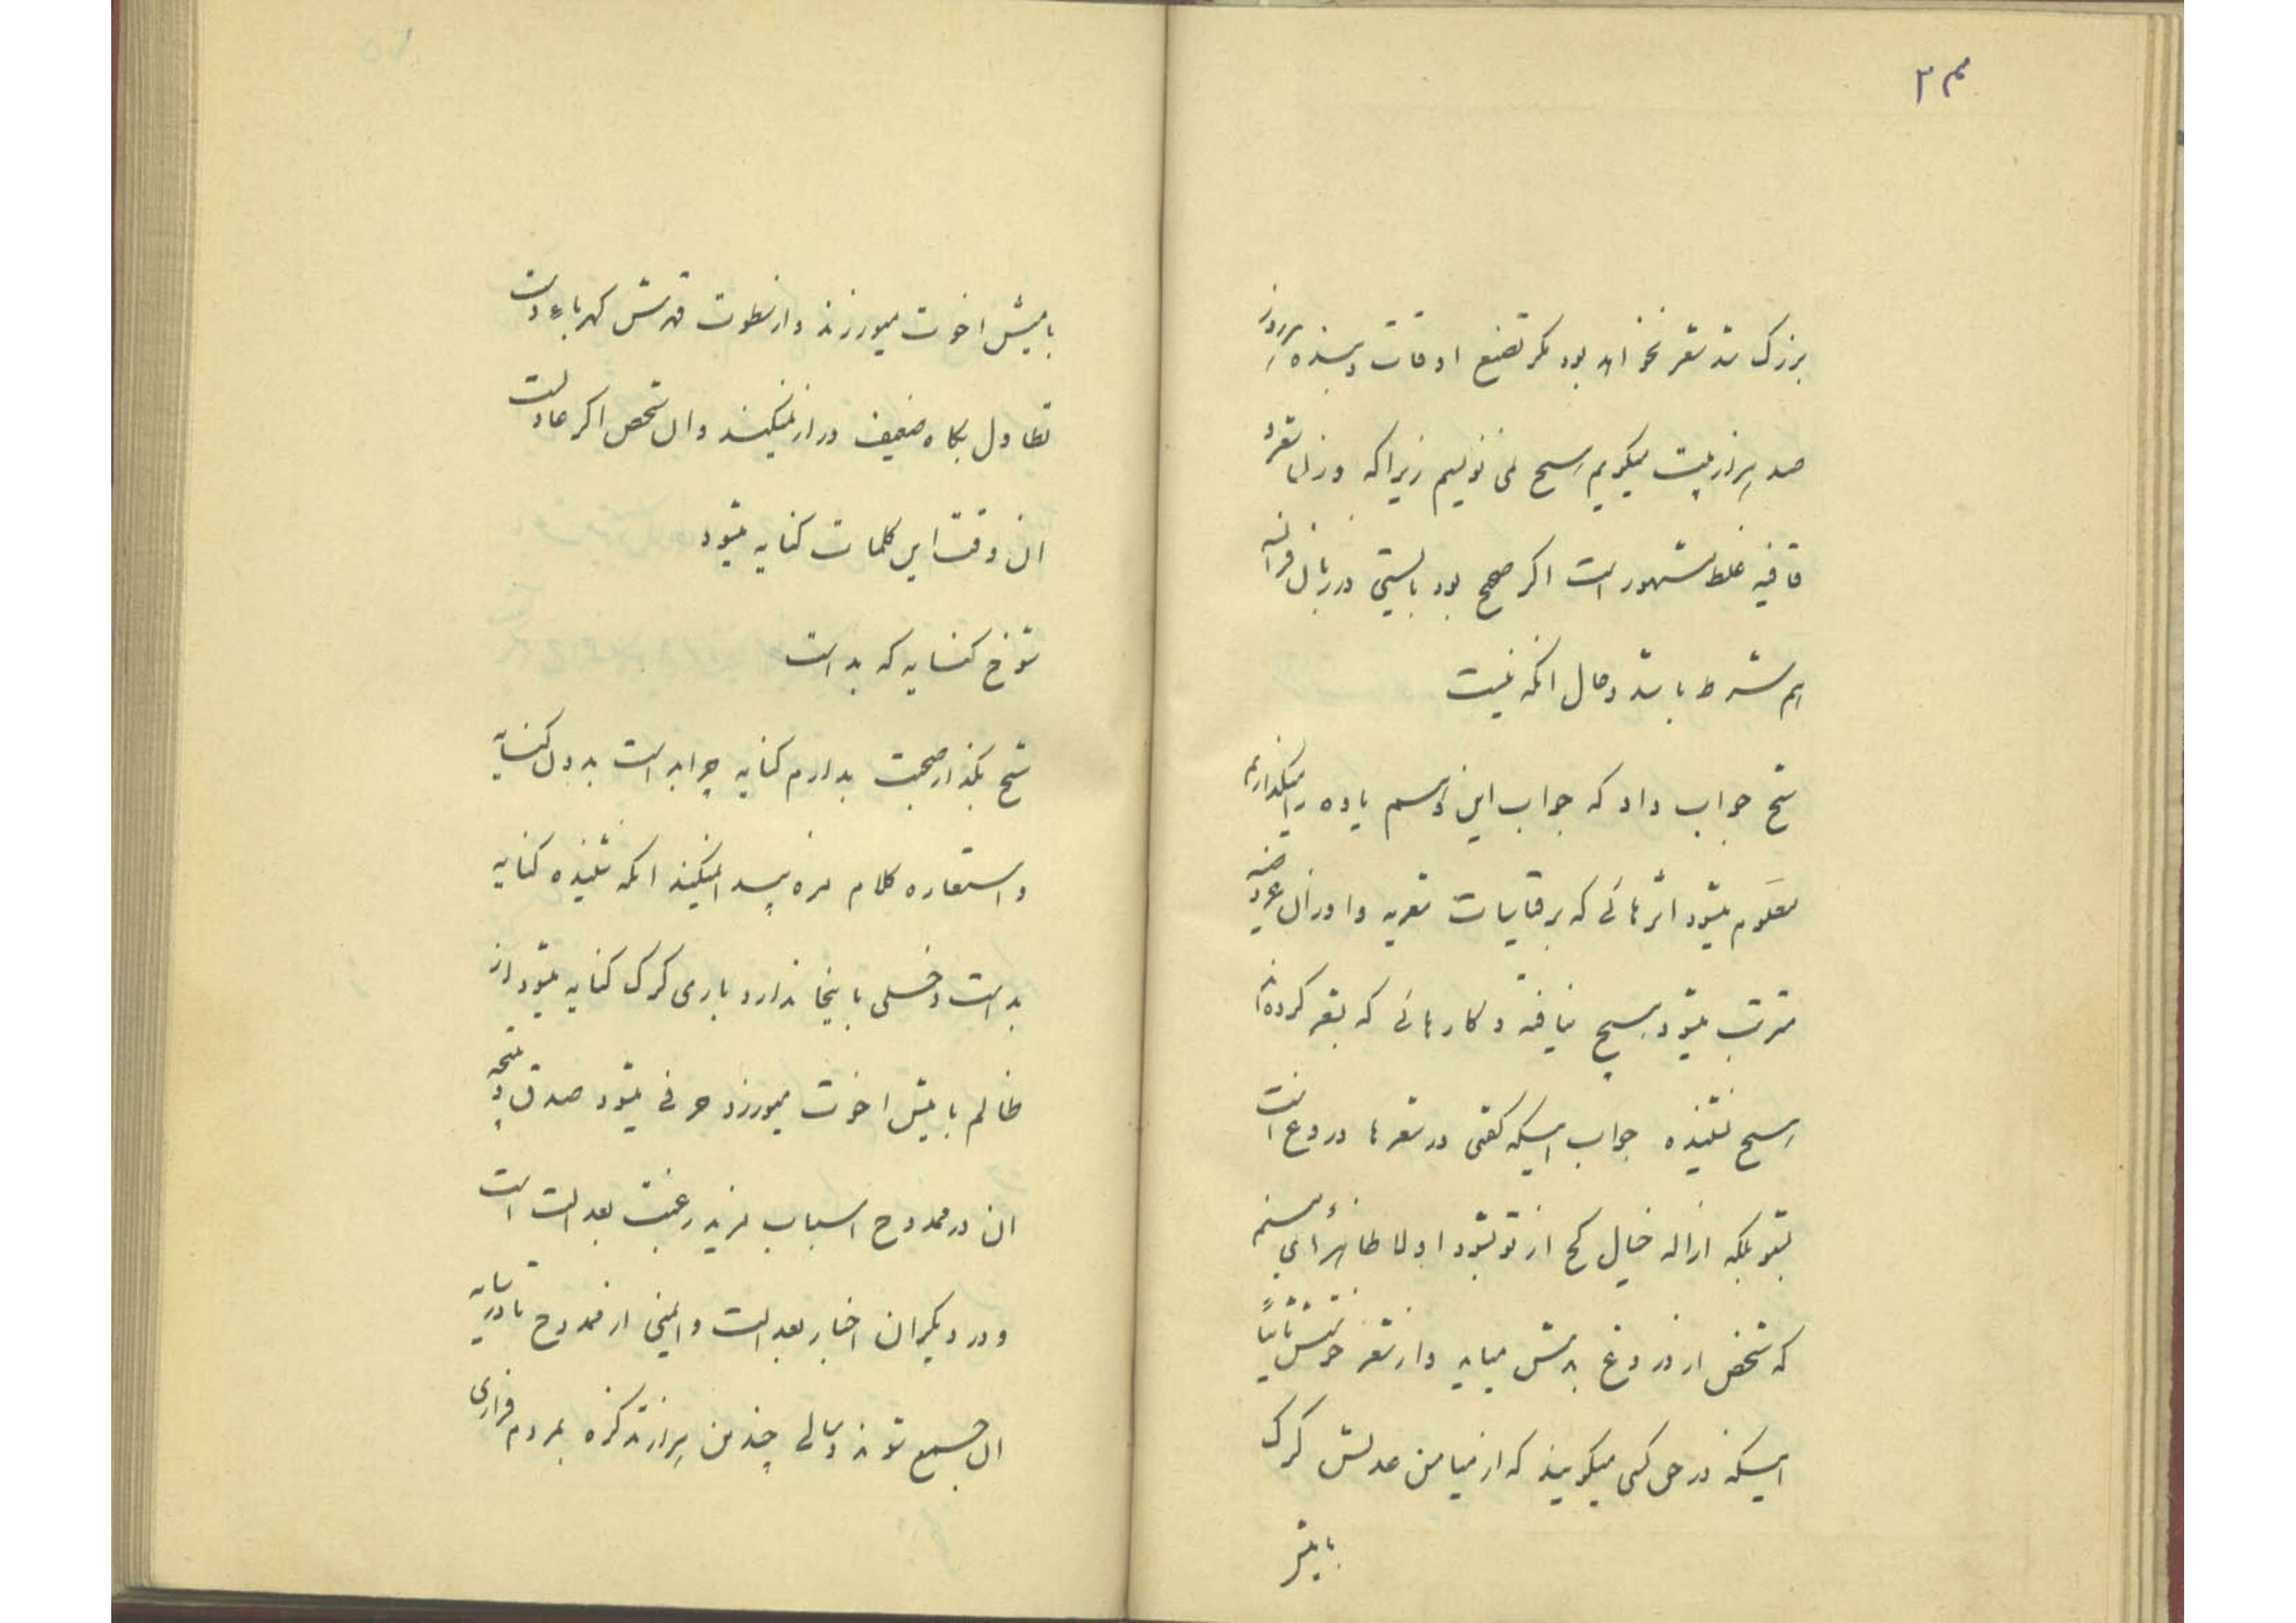 ۳۴
بزرگ شد شعر نخواهد بود مگر تضیع اوقات و بنده هر روز
صد هزار بیت میگویم هیچ نمی نویسم زیرا که وزن شعر و
قافیه غلط مشهور است اگر صحیح بود بایستی در زبان فرانسه
هم شرط باشد و حال انکه نیست
شیخ جواب داد که جواب این قسم یاوه را میگذاریم
معلوم میشود اثرهائی که بر قیاسات شعریه و اوزان عروضیه
مترتب میشود هیچ نیافته و کارهائی که بشعر کرده اند
هیچ نشنیده جواب اینکه گفتی در شعرها دروغ است
بشنو بلکه ازاله خیال کج از تو بشود اولا ظاهرا می بینم
که شخص از دروغ بدش میاید و از شعر خوشش ثانیاً
اینکه در حق کسی میگویند که از میامن عدلش گرگ
با میش
با میش اخوت میورزند و از سطوت قهرش کهربا دست
تطاول بکاه ضعیف دراز نمیکند و ان شخص اگر عادل است
ان وقت این کلمات کنایه میشود
شوخ کنایه که بد است
شیخ بگذار صحبت بدارم کنایه چرا بد است بدون کنایه
و استعاره کلام مزه پیدا نمیکند انکه شنیده کنایه
بد است دخلی باینجا ندارد باری گرگ کنایه میشود از
ظالم با میش اخوت میورزد حرفی میشود صدق و نتیجه
ان در ممدوح اسباب مزید رغبت بعدالت است
و در دیگران اخبار بعدالت و ایمنی از ممدوح تا در سایه
ان جمع شوند و سالی چندین هزار تذکره بمردم فراری